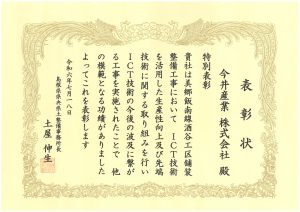 表彰状
今井産業株式会社 殿
特別表彰
貴社は美郷飯南線酒谷工区舗装
整備工事において ICT技術
を活用した生産性向上及び先端
技術に関する取り組みを行い
ICT技術の今後の波及に繋が
る工事を実施されたことで 他
の模範となる功績がありました
よってこれを表彰します
令和六年七月一八日
島根県県央県土整備事務所長
土屋 伸生